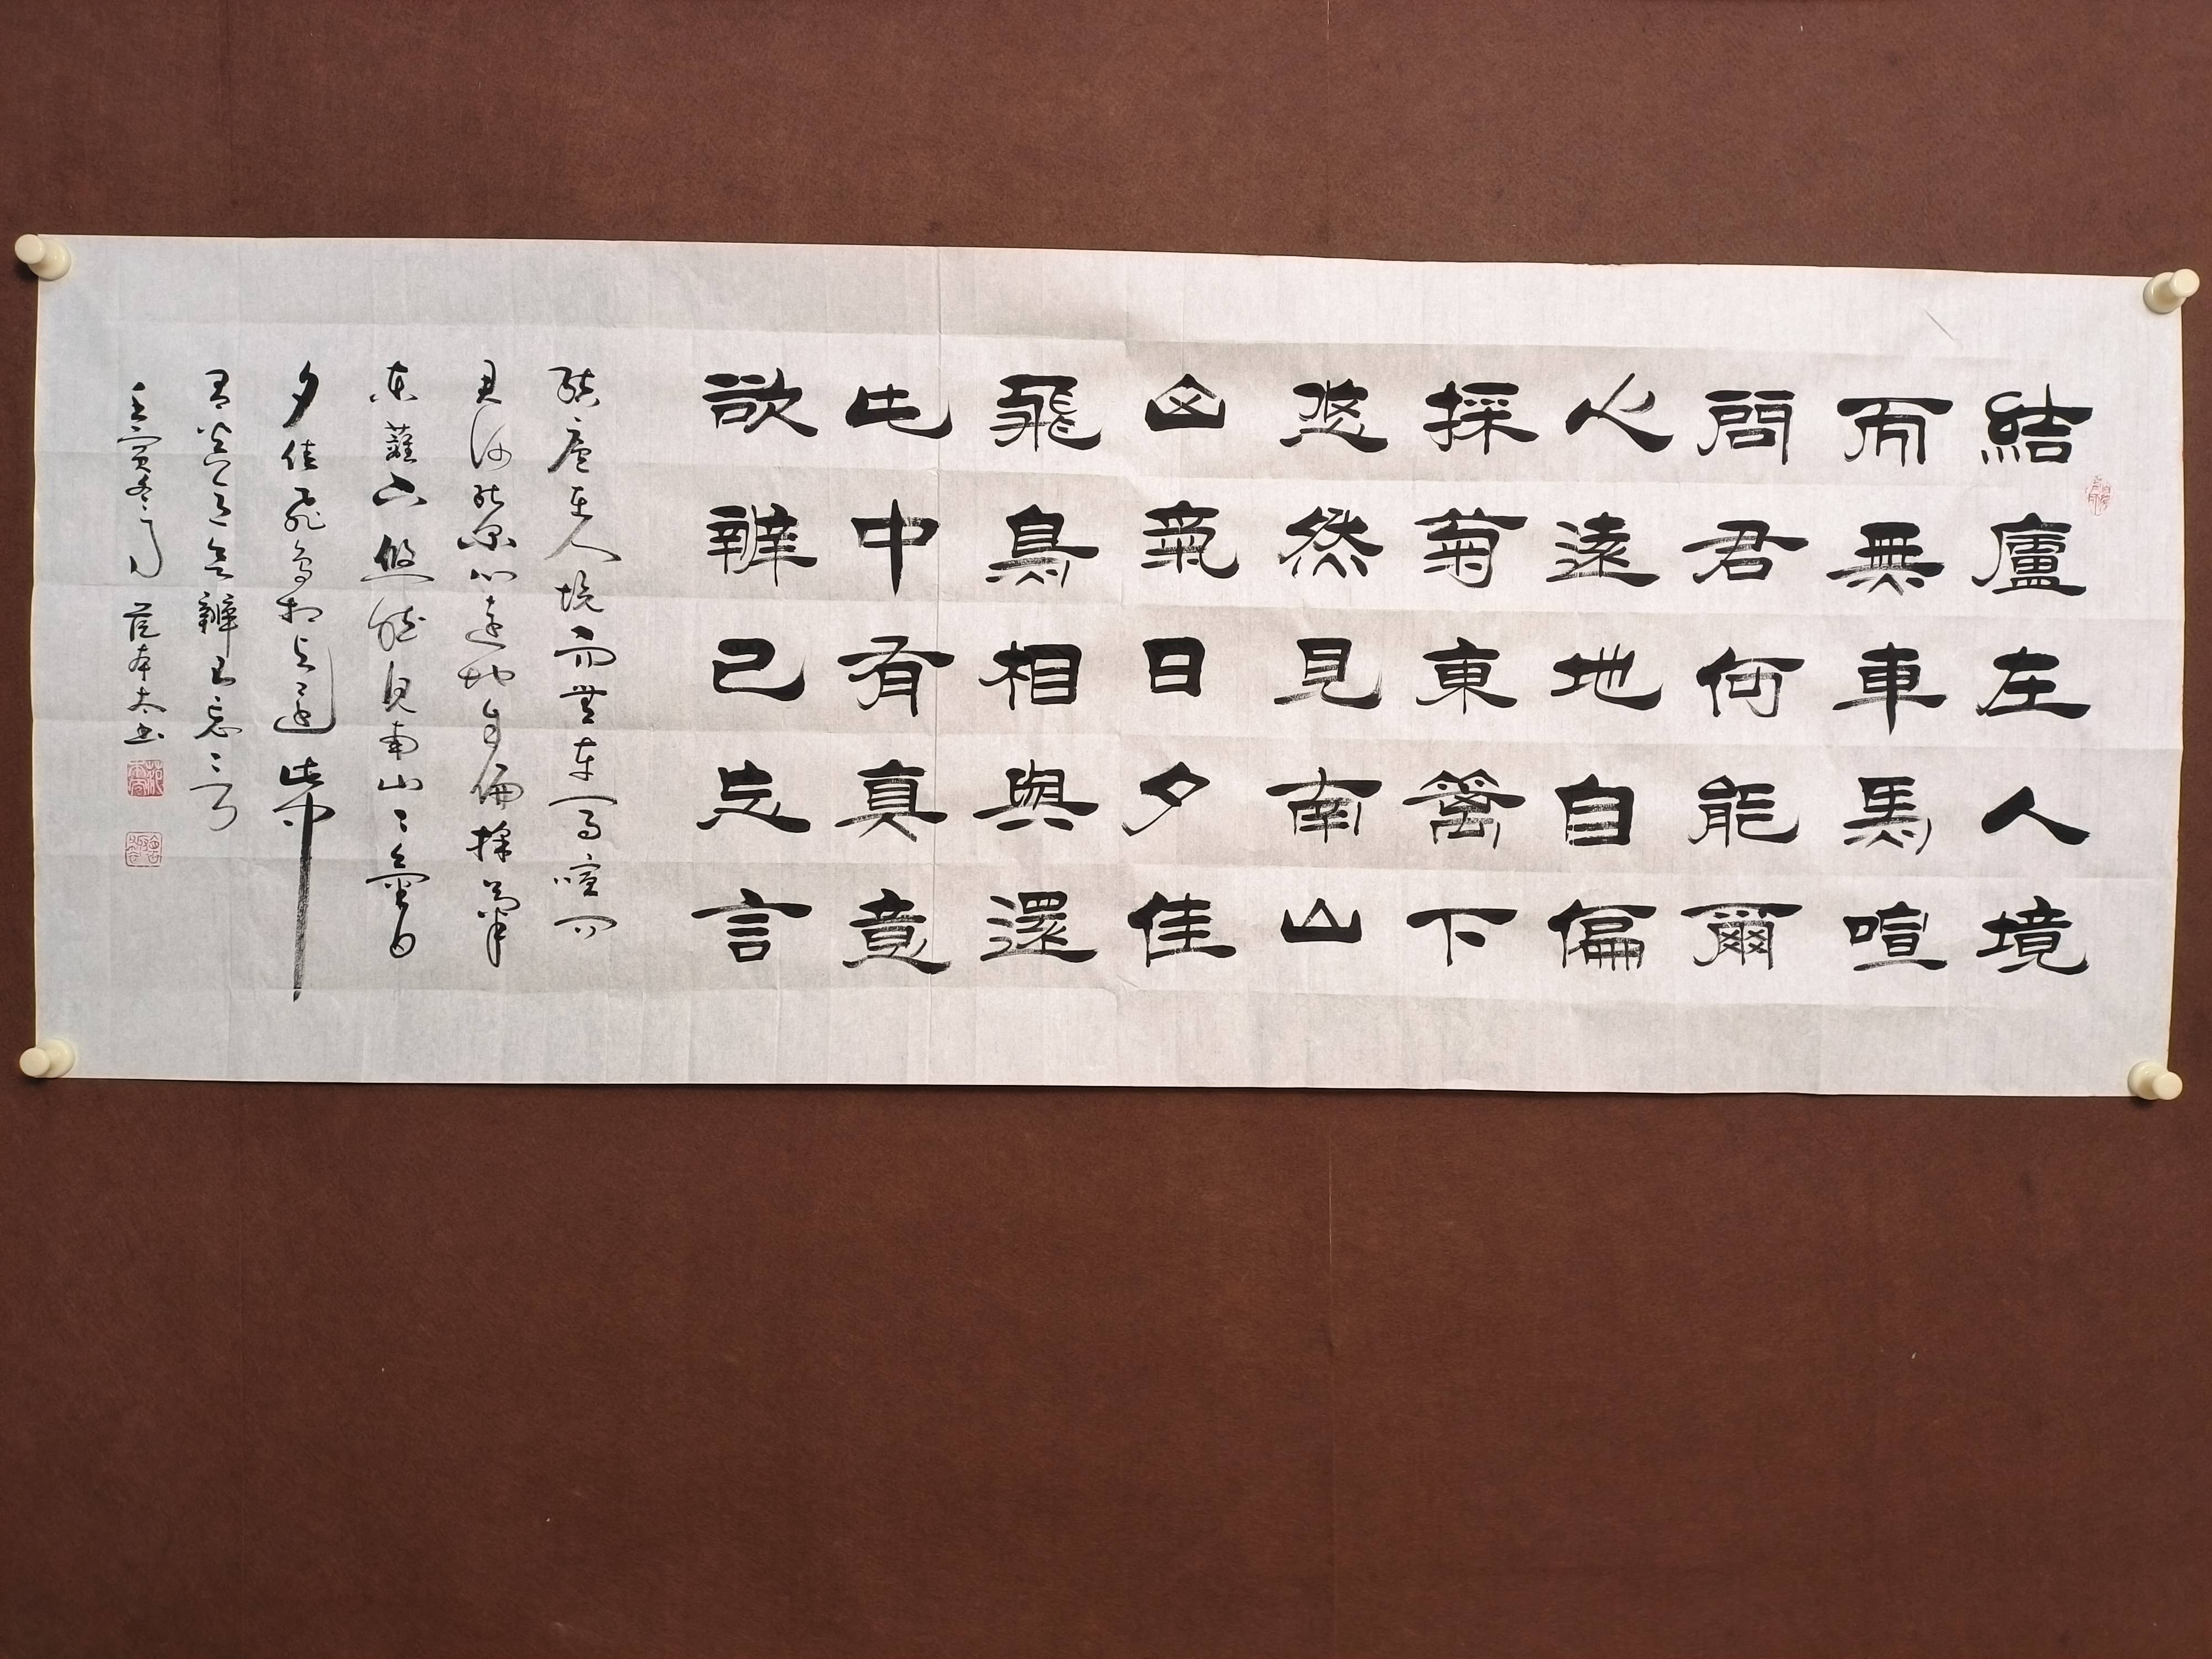 結廬在人境
而無車馬喧
問君何能爾
心遠地自偏
採菊東籬下
悠然見南山
山氣日夕佳
飛鳥相與還
此中有真意
欲辨已忘言
結廬在人境而無車馬喧問
君何能爾心遠地自偏採菊
東籬下悠然見南山〻氣日
夕佳飛鳥相與還此中
有真意欲辨已忘言
壬寅冬月